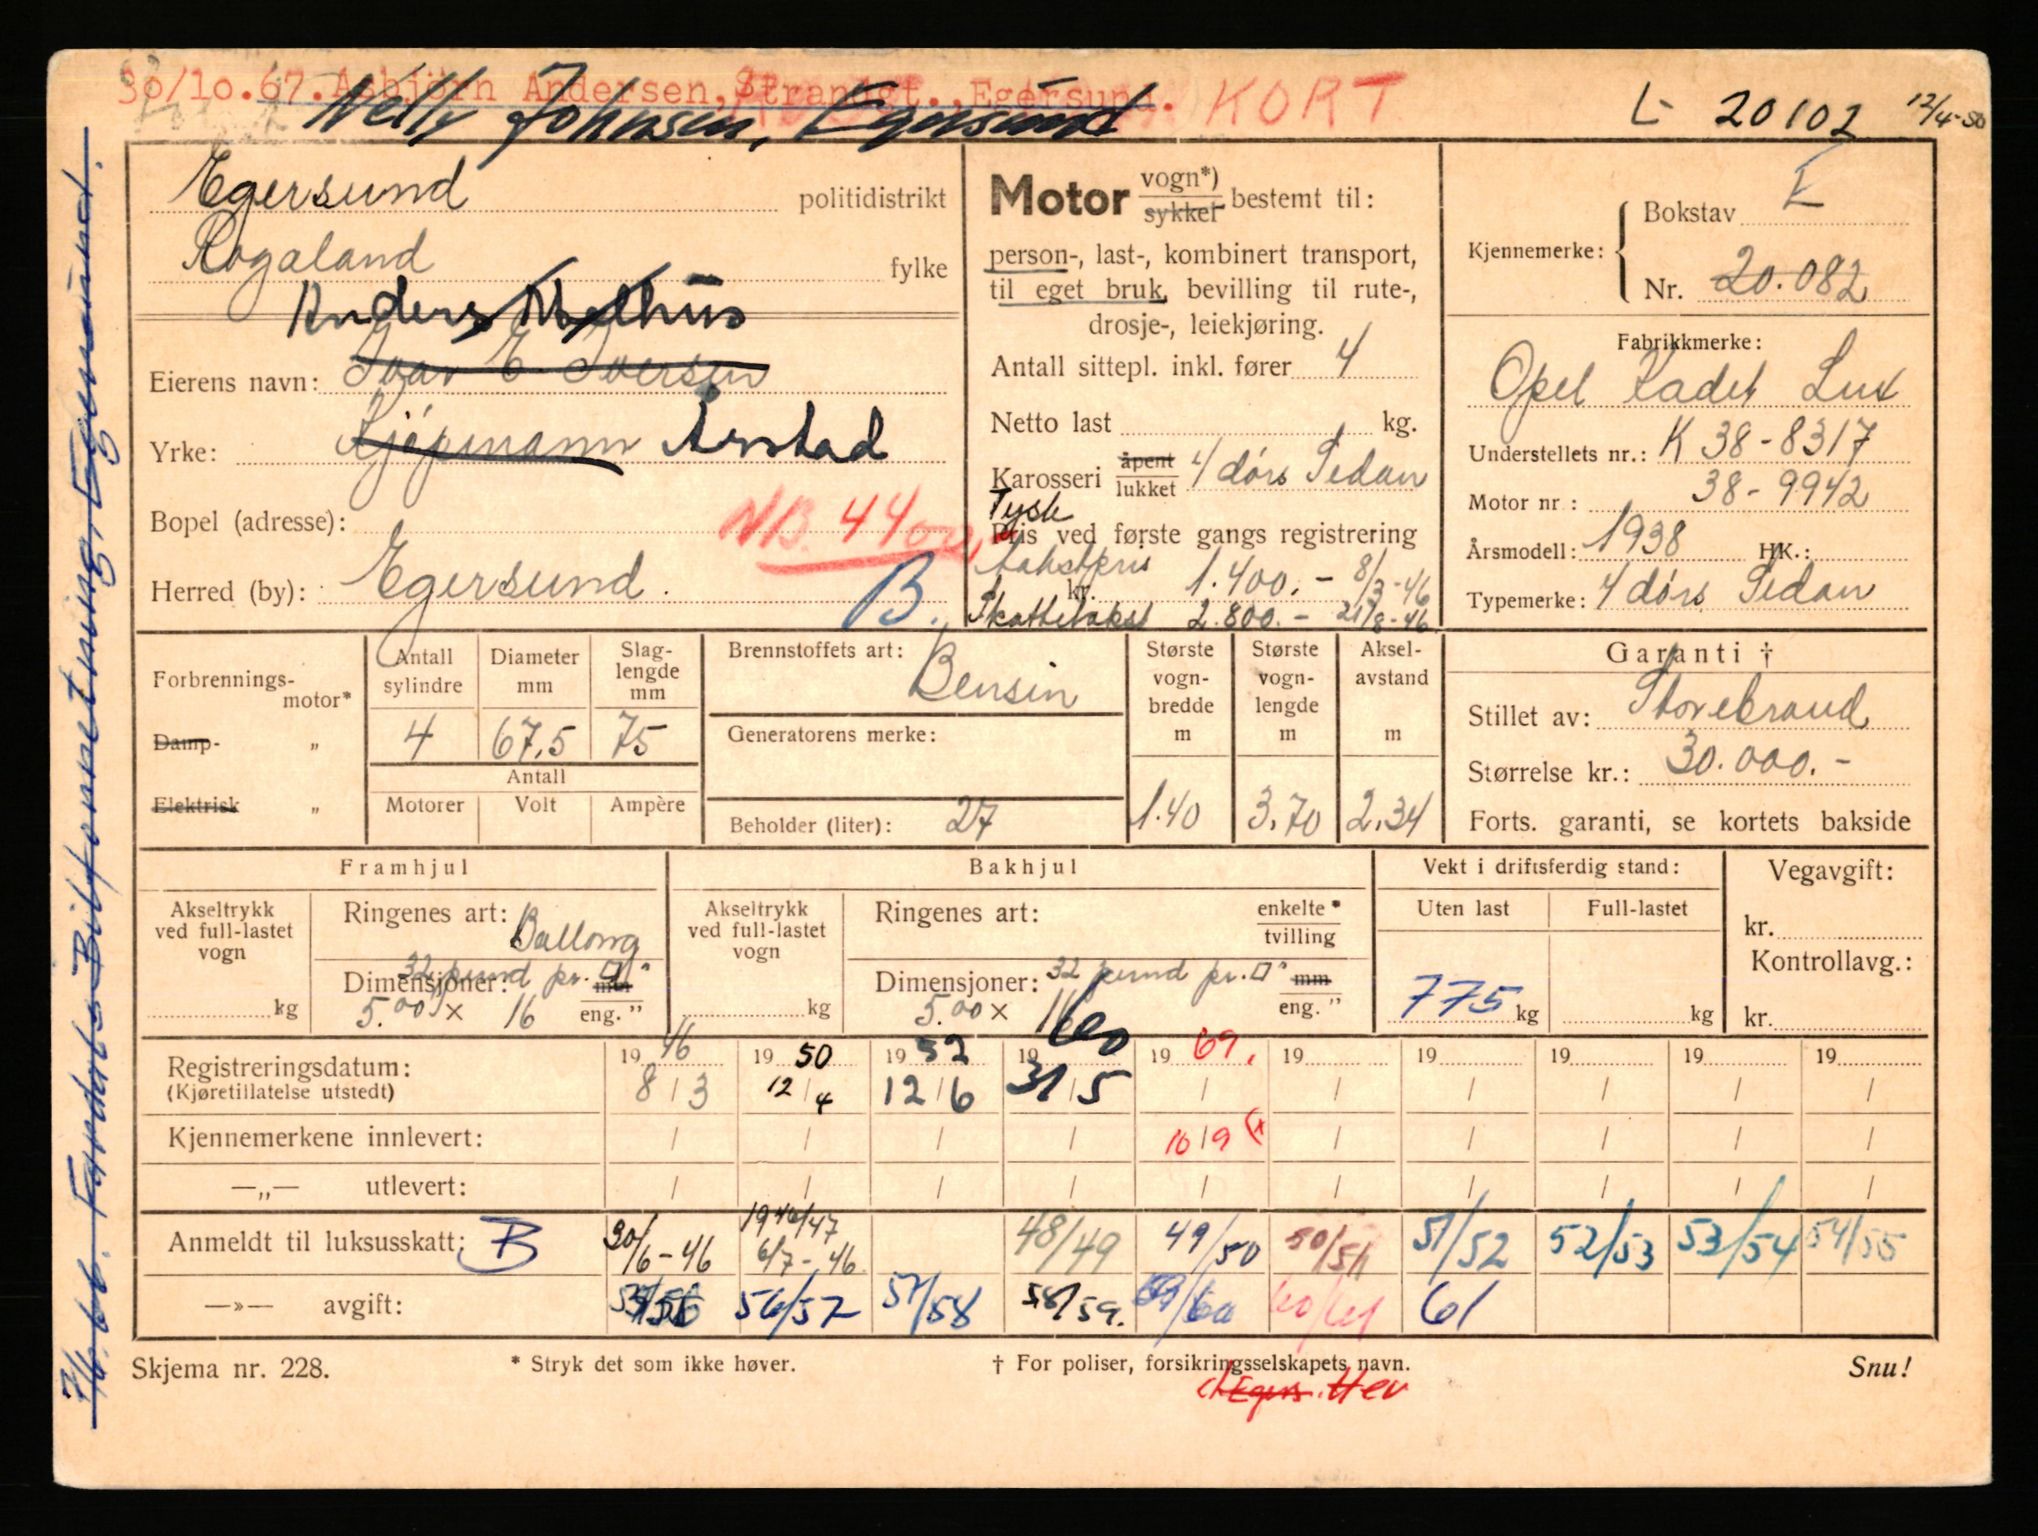 30/10.67. Asbjörn Andersen, Strandgt., Egersund. KORT
Nelly Johnsen, Egersund
L- 20102 12/4-50
Egersund politidistrikt
Rogaland fylke
Anders
Eierens navn: Ivar E. Iversen
Yrke: Kjøpmann Årstad
Bopel (adresse): NB. 4400,
Herred (by): Egersund. B.
Motor vogn*) sykkel bestemt til:
person-, last-, kombinert transport,
til eget bruk, bevilling til rute-,
drosje-, leiekjøring.
Antall sittepl. inkl. fører 4
Netto last kg.
Karosseri åpent lukket 4 dørs Sedan
Tysk
Pris ved første gangs registrering
takstpris kr. 1.400.- 8/3-46
Skattetakst 2.800.- 21/8-46
Kjennemerke: Bokstav L
Nr. 20.082
Fabrikkmerke:
Opel Kadet Lux
Understellets nr.: K 38-8317
Motor nr: 38-9942
Årsmodell: 1938 HK.:
Typemerke: 4 dørs Sedan
Forbrennings-motor*
Damp- „
Elektrisk „
Antall sylindre 4
Diameter mm 67,5
Slag-lengde mm 75
Antall
Motorer Volt Ampère
Brennstoffets art: Bensin
Generatorens merke:
Beholder (liter): 27
Største vogn-bredde m 1.40
Største vogn-lengde m 3.70
Aksel-avstand m 2.34
Garanti †
Stillet av: Storebrand
Størrelse kr.: 30.000.-
Forts. garanti, se kortets bakside
Framhjul
Akseltrykk ved full-lastet vogn kg
Ringenes art: Ballong
32 pund pr. □"
Dimensjoner: 5.00 × 16 mm eng. "
Bakhjul
Akseltrykk ved full-lastet vogn kg
Ringenes art: enkelte* tvilling
32 pund pr. □"
Dimensjoner: 5.00 × 16 mm eng. "
Vekt i driftsferdig stand:
Uten last 775 kg
Full-lastet kg
Vegavgift:
kr.
Kontrollavg.:
kr.
Registreringsdatum: 1946 1950 1952 1960 1969. 19 19 19 19 19
(Kjøretillatelse utstedt) 8/3 12/4 12/6 31/5 / / / / / /
Kjennemerkene innlevert: / / / / 10/9 (x / / / / /
—„— utlevert: / / / / / / / / / /
Anmeldt til luksusskatt: B 30/6-46 1946/47 6/7-46 48/49 49/50 50/51 51/52 52/53 53/54 54/55
—»— avgift: 56/57 57/58 58/59. 59/60 60/61 61
Skjema nr. 228.
* Stryk det som ikke høver.
† For poliser, forsikringsselskapets navn.
Snu!
7/6.66. Fardals Bilforretning, Egersund.